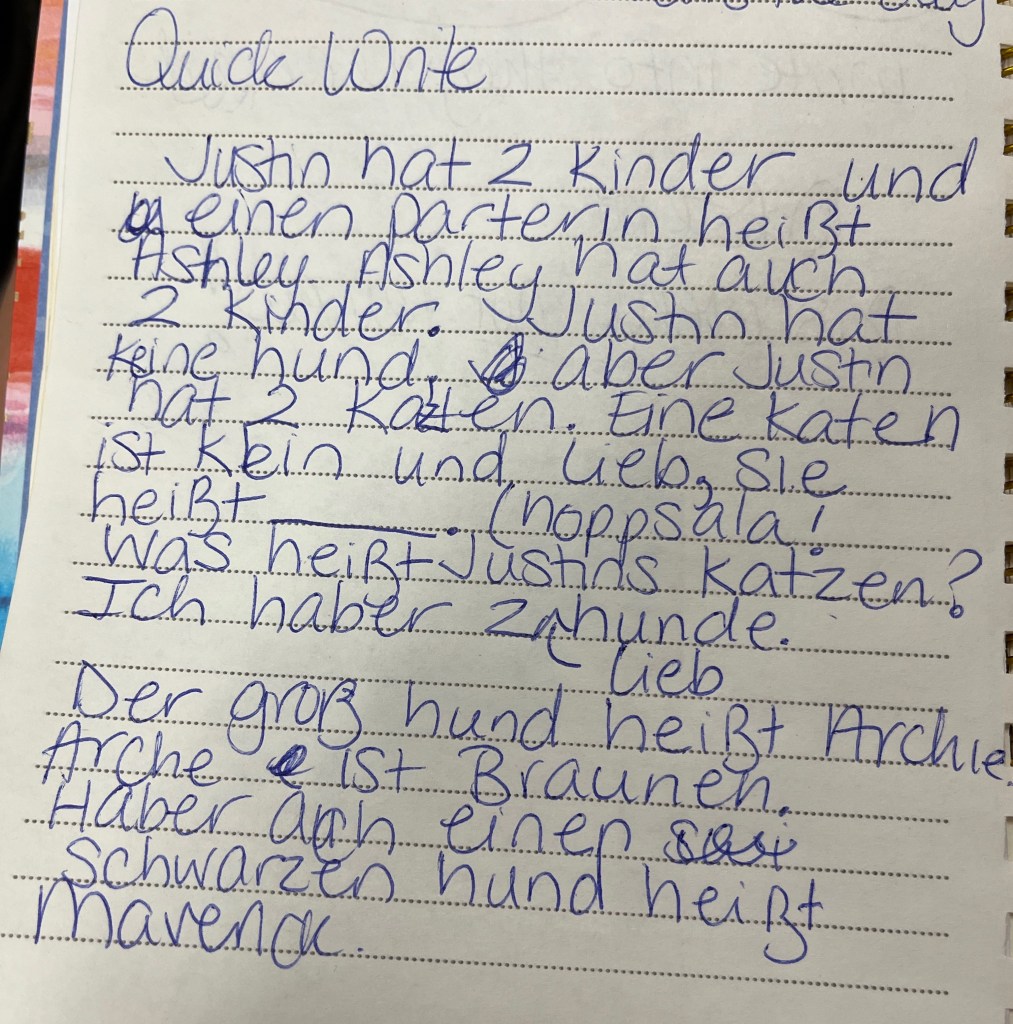 Quick Write
Justin hat 2 Kinder und
einen parterin heißt
Ashley. Ashley hat auch
2 Kinder. Justin hat
keine hund. aber Justin
hat 2 Katzen. Eine katen
ist klein und lieb, sie
heißt ______. (hoppsala!
Was heißt Justins katzen?
Ich haber 2 hunde.
lieb
Der groß hund heißt Archie.
Arche ist Braunen.
Haber auch einen
schwarzen hund heißt
Maverick.